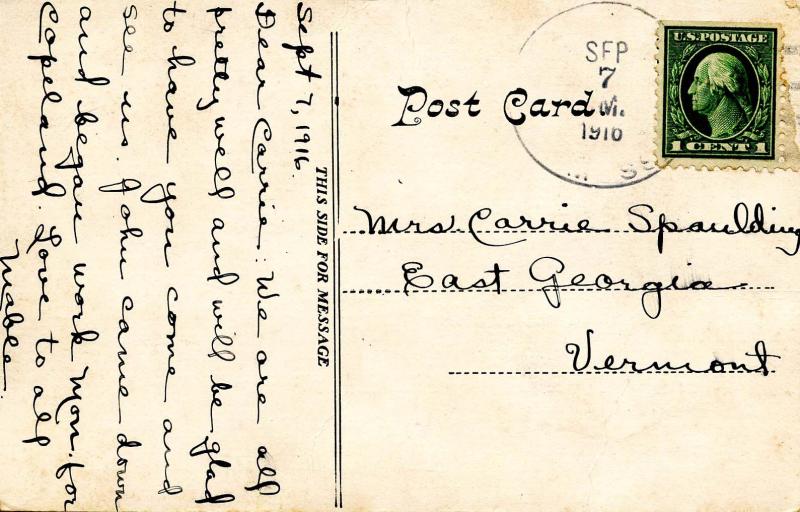 Sept 7, 1916.
Dear Carrie: We are all
pretty well and will be glad
to have you come and
see us. John came down
and began work Mon. for
Copeland. Love to all
Mable.
THIS SIDE FOR MESSAGE
Post Card
SEP
7
M.
1916
U.S. POSTAGE
1 CENT 1
Mrs Carrie Spaulding
East Georgia
Vermont